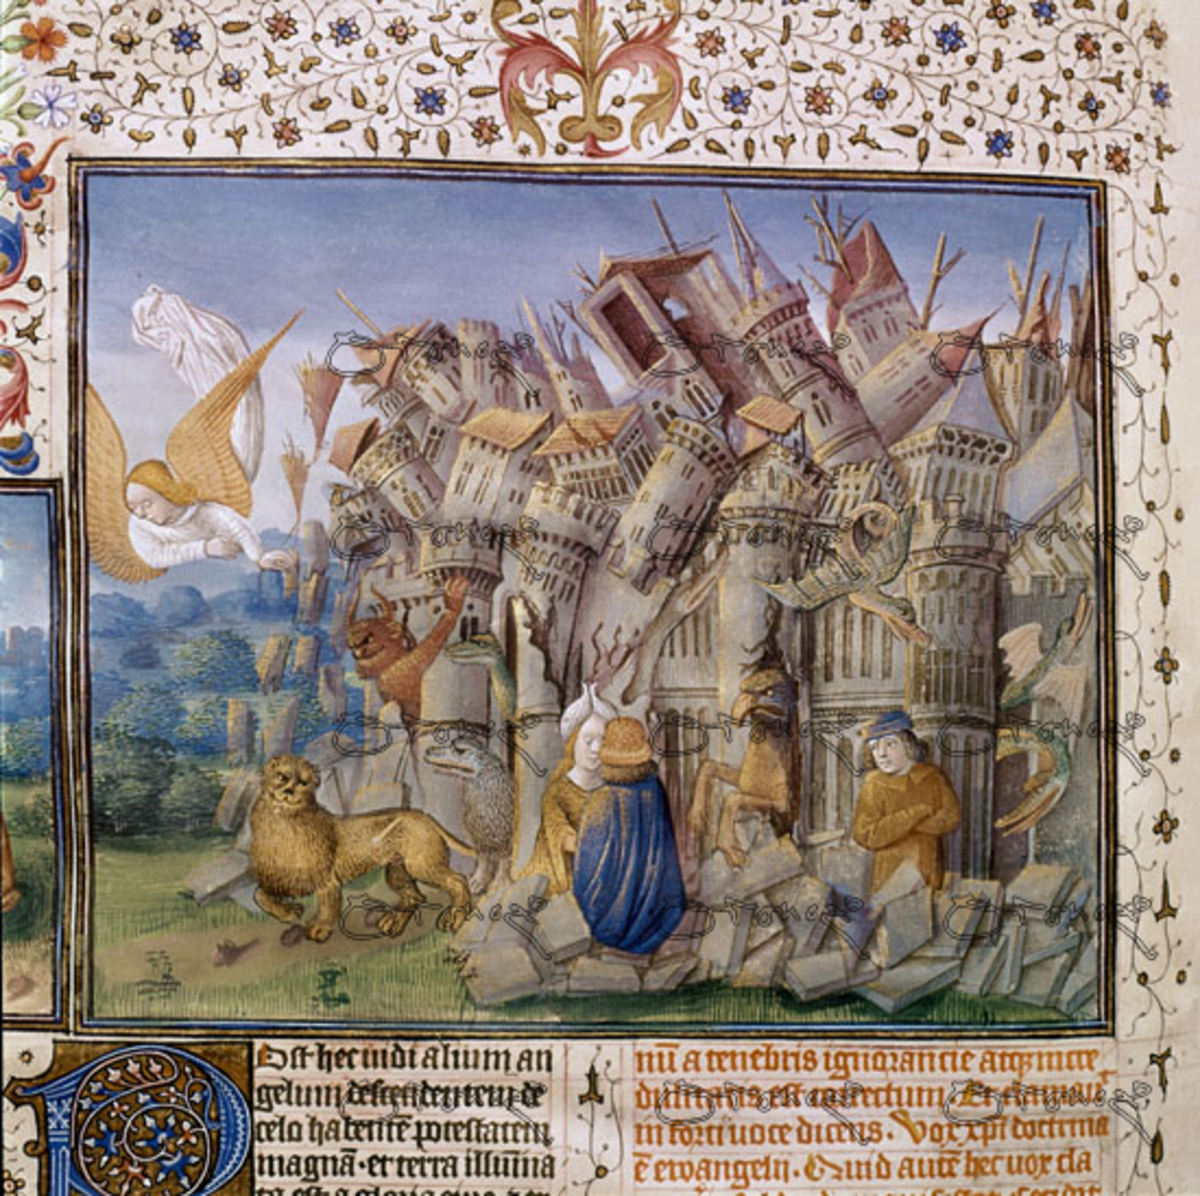 Post hec uidi alium an
gelum descendentem de
celo habentē potestatem
magnā. et terra illuīna
nū a tenebris ignorancie atqz incre
dulitatis est Et clamauit
in forti uoce dicens. Vox xp̄i doctrina
ē ewangelii. Quid autē hec uox cla